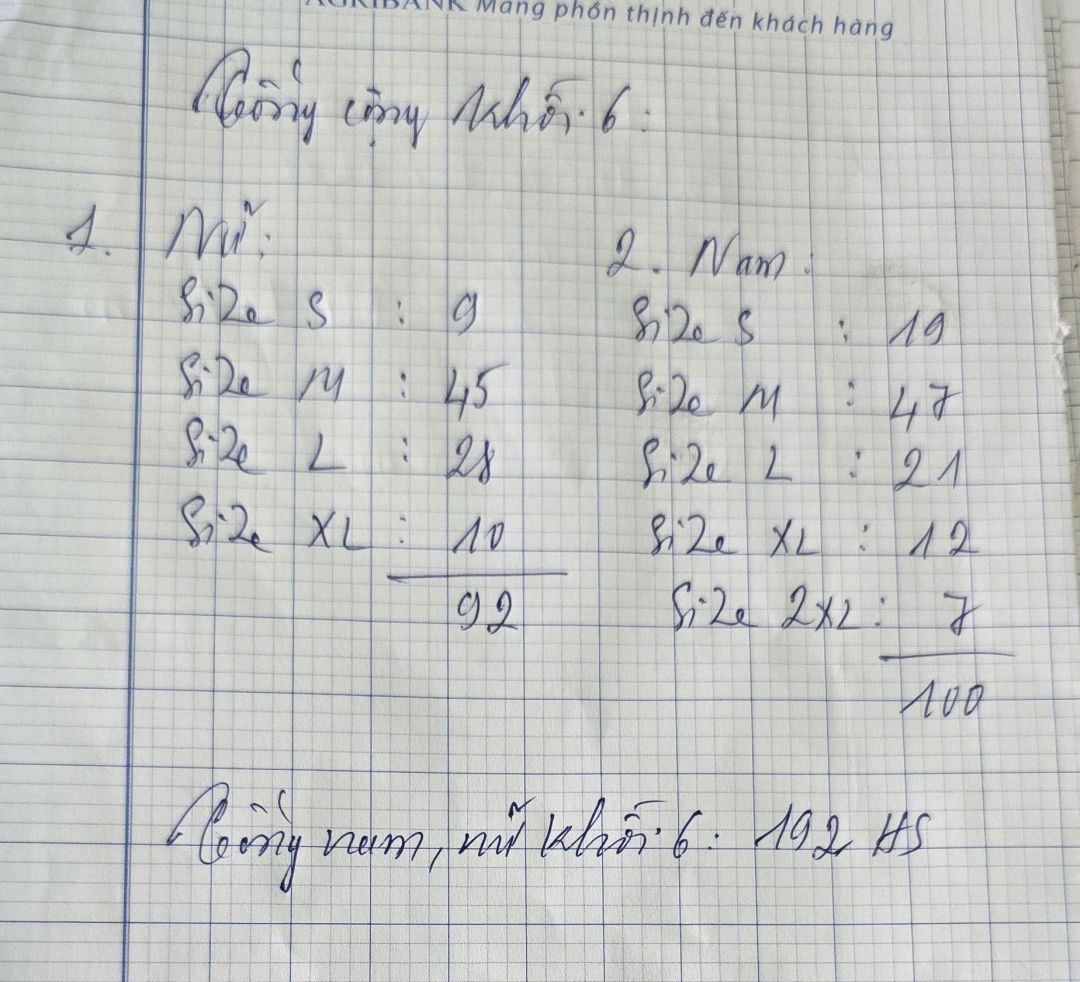 AGRIBANK Mang phồn thịnh đến khách hàng
Tổng cộng khối 6:
1. Nữ:
Size S : 9
Size M : 45
Size L : 28
Size XL : 10
92
2. Nam:
Size S : 19
Size M : 47
Size L : 21
Size XL : 12
Size 2XL : 7
100
Tổng nam, nữ khối 6: 192 HS